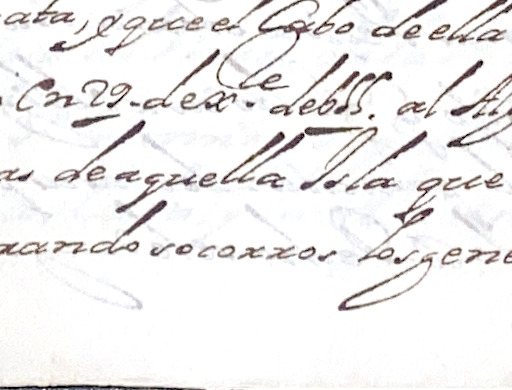 ata, y que el Cabo de ella
En 29. de xᵇʳᵉ deb
al
as de aquella Isla que
rando socorros Los gene